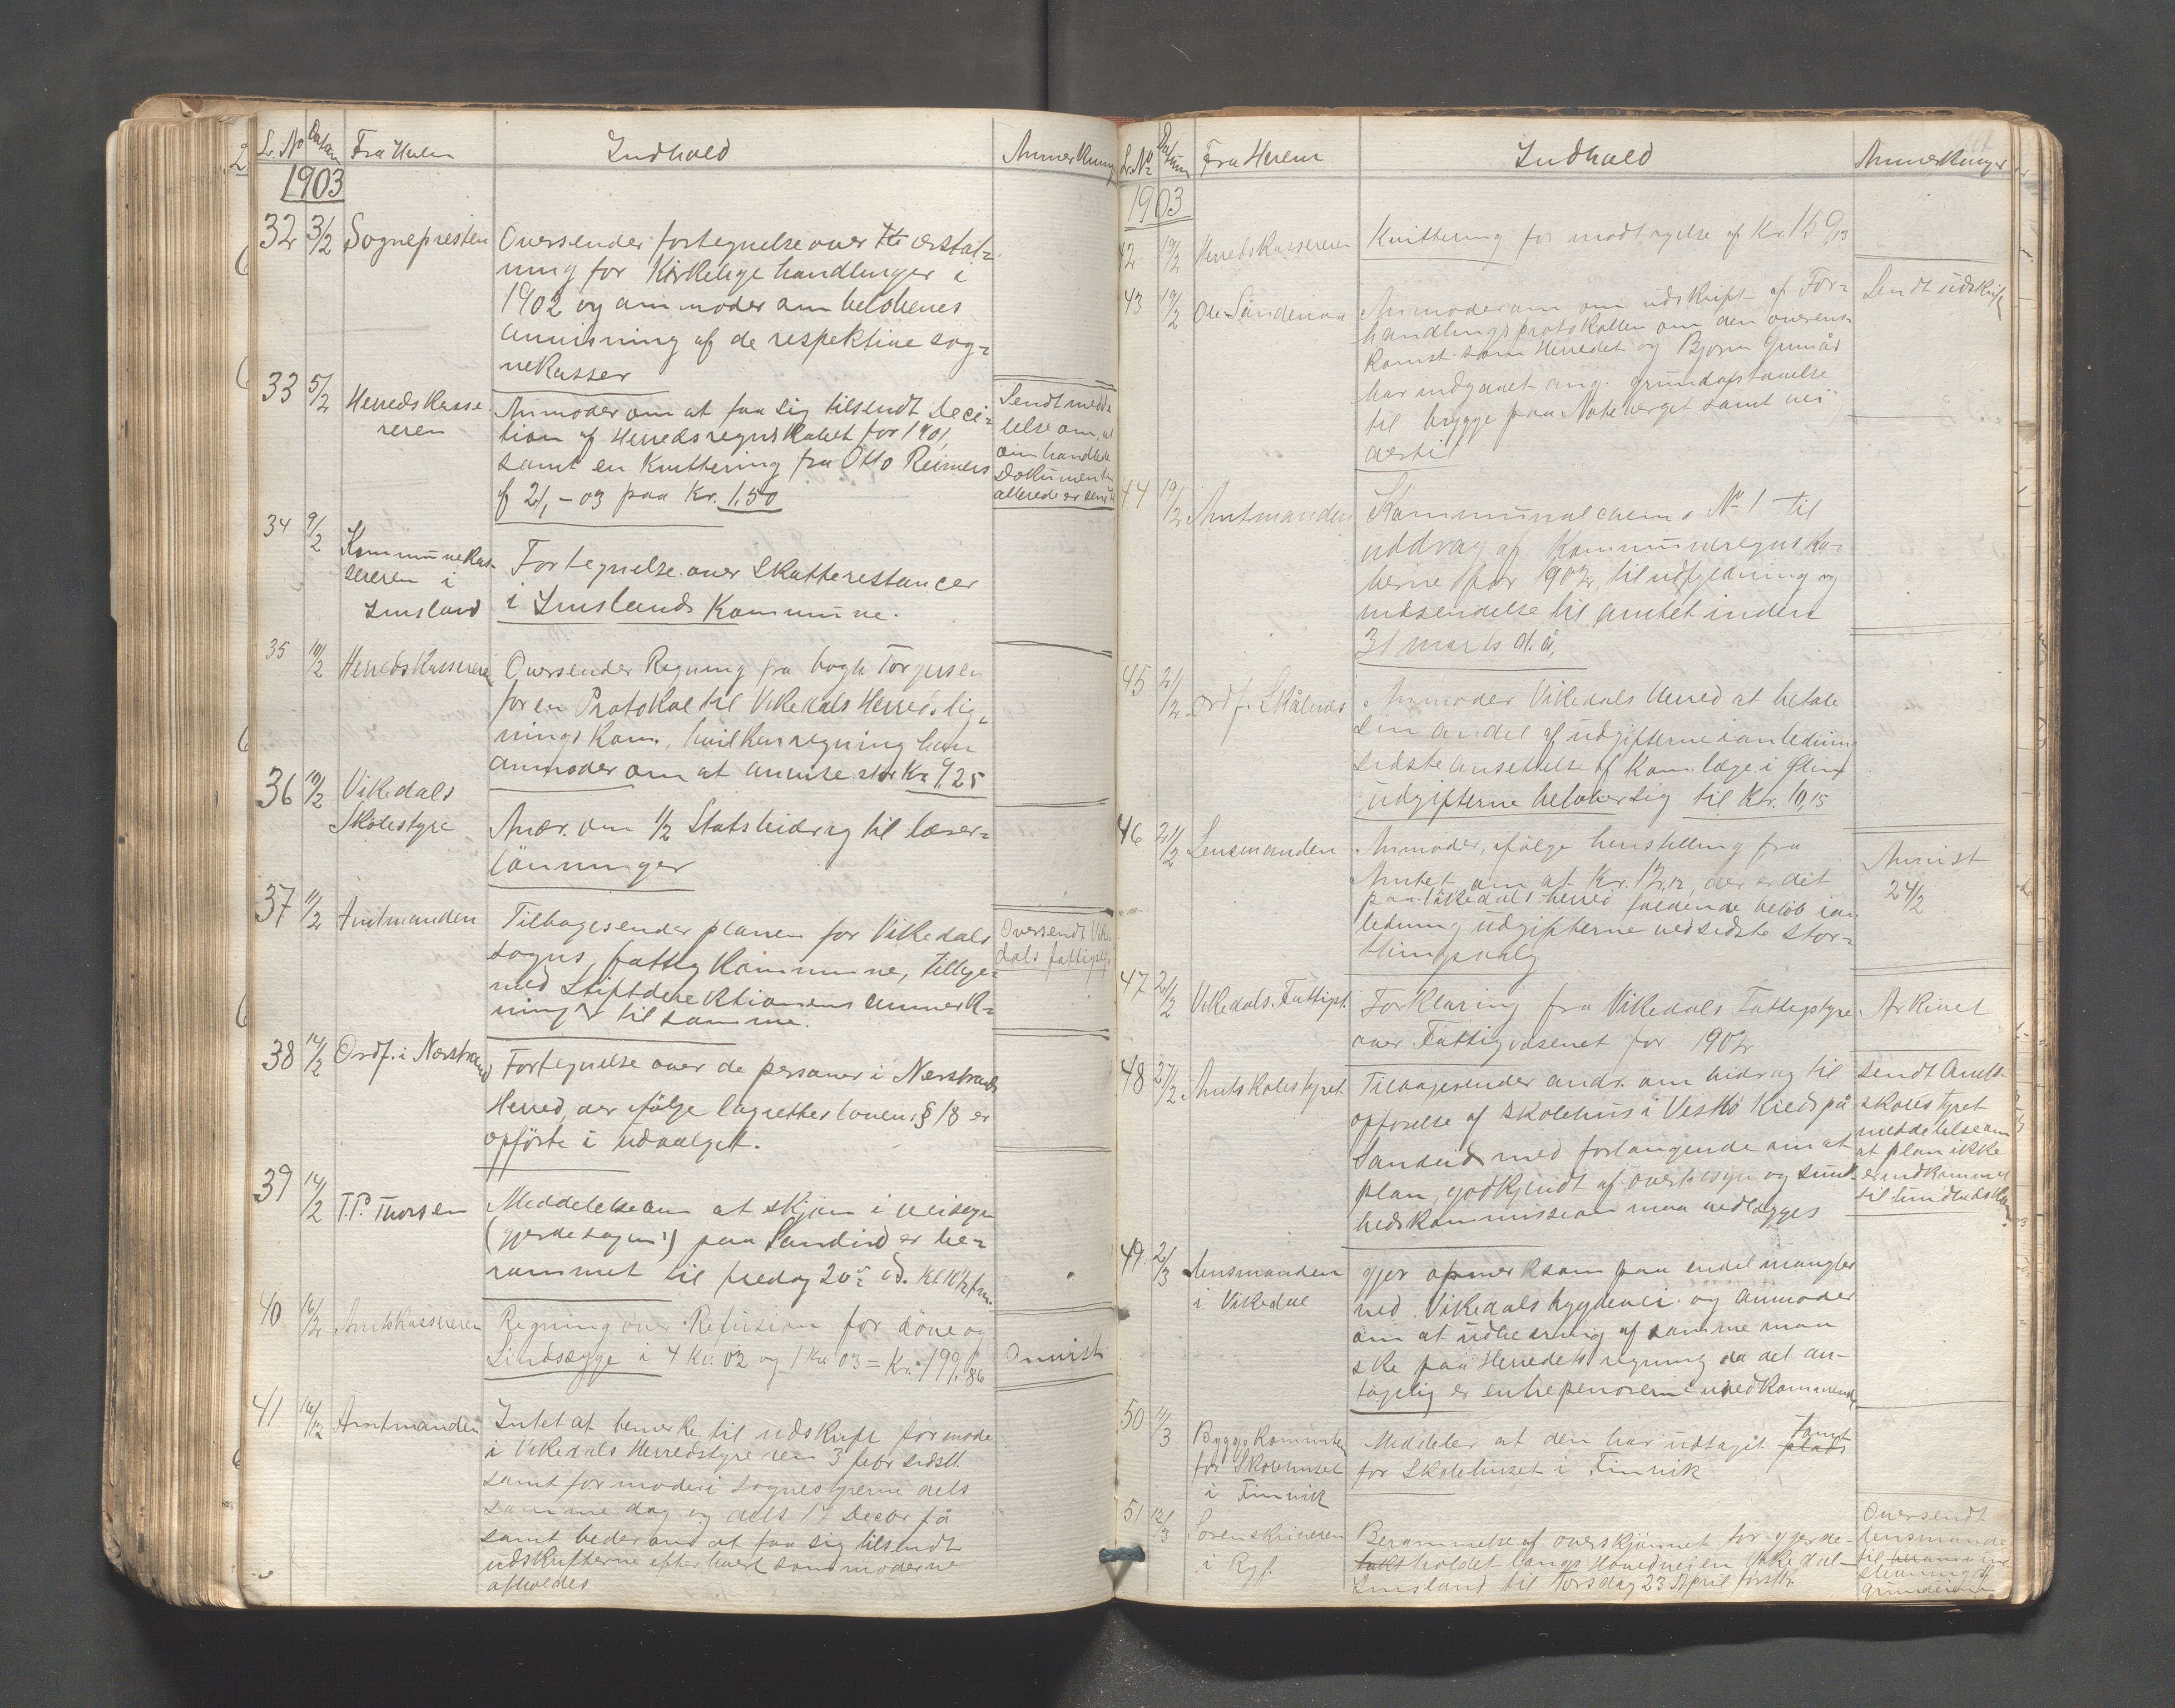 Lr. No Datum Fra Hvem Indhold Anmerkning
1903
32 3/2 Sognepresten Oversender fortegnelse over erstat=
ning for Kirkelige handlinger i
1902 og anmoder om beløbenes
anvisning af de respektive sog=
nekasser
33 5/2 Herredskasse
reren
Anmoder om at faa sig tilsendt Deci=
tion af Herredsregnskabet for 1901,
samt en Kvittering fra Otto Reimers
f 2/1 - 03 paa Kr. 1,50
Sendt medde
lelse om, at
omhandlede
Dokumenter
allerede er sendt
34 9/2 Kommunekas-
sereren i
Imsland
Fortegnelse over Skatterestancer
i Imslands Kommune.
35 10/2 Herredskassereren Oversender Regning fra bogh. Torgersen
for en Protokol til Vikedals Herreds lig=
nings Kom., hvilken regning han
anmoder om at anvise stor Kr. 9,25
36 10/2 Vikedals
Skolestyre
Andr. om 1/2 Statsbidrag til lærer=
lönninger
37 11/2 Amtmanden Tilbagesender planen for Vikedals
sogns fattigkommune, tillige=
med Stiftdirektionens anmerk=
ninger til samme.
Oversendt Vike
dals fattigst.
38 14/2 Ordf. i Nerstrand Fortegnelse over de personer i Nerstrands
Herred, der ifölge lagrettes lovens § 18 er
opförte i udvalget.
39 14/2 T.P. Thorsen Meddelelse om at skjøn i veisagen
(gjerdesagen) paa Sandeid er be=
rammet til fredag 20de d. Kl. 10 1/2 fm.
40 16/2 Amtskassereren Regning over Refusion for döve og
Sindssyge i 4 Kv. 02 og 1 Kv. 03 = Kr. 199,86
Anvist
41 16/2 Amtmanden Intet at bemerke til udskrift for møde
i Vikedals Herredsstyre den 3 febr sidstl.
samt for møder i sognestyrerne dels
samme dag og dels 17 Decbr f å
samt beder om at faa sig tilsendt
udskrifterne efterhvert som møderne
afholdes
Lr. No Datum Fra Hvem Indhold Anmerkninger
1903
42 19/2 Herredskassereren Kvittering for modtagelse af Kr.
43 19/2 Ole Söndenaa Anmoder om udskrift af For=
handlingsprotokollen om den overens=
komst som Herredet og Bjørn
har indgaaet ang. grundafstaaelse
til brygge paa Noteberget samt vei
dertil
Sendt udskrift
44 19/2 Amtmanden Kommunalskema No 1 til
uddrag af Kommuneregnska=
berne for 1902, til udfyldning og
indsendelse til amtet inden
31 marts d. å.
45 21/2 Ordf. Skålnes Anmoder Vikedals Herred at betale
sin andel af udgifterne i anledning
sidste ansættelse af Kom.læge i Ølen
Udgifterne beløber sig til Kr. 10,15
46 21/2 Lensmanden Anmoder, ifölge henstilling fra
Amtet om at Kr. 12,12, der er det
paa Vikedals herred faldende beløb i an
ledning udgifterne ved sidste stor=
thingsvalg
Anvist
24/2
47 21/2 Vikedals Fattigst. Forklaring fra Vikedals Fattigstyre
over Fattigvæsenet for 1902
Arkivet
48 27/2 Amtskolestyret Tilbagesender andr. om bidrag til
opførelse af skolehus i Vestbø Kreds på
Sandeid med forlangende om at
plan, godkjendt af overtilsyn og sund-
hedskommission maa vedlægges
Sendt Amts-
skolestyret
meddelelse om
at plan ikke
er indkommet
til Sundhedskom.
49 2/3 Lensmanden
i Vikedal
gjør opmerksom paa endel mangler
ved Vikedals bygdevei og anmoder
om at udbedring af samme maa
ske paa Herredets regning da det an-
tagelig er entreprenørerne uvedkommende
50 11/3 Byggekomiteen
for Skolehuset
i Finvik
Meddeler at den har udtaget tomt
for Skolehuset i Finvik
51 12/3 Sorenskriveren
i Ryf.
Berammelse af overskjønnet for gjerde-
holdet langs Hovedveien Vikedal-
Imsland til Torsdag 23 April førstk.
Oversendt
lensmanden
til
stevning af
grundeierne